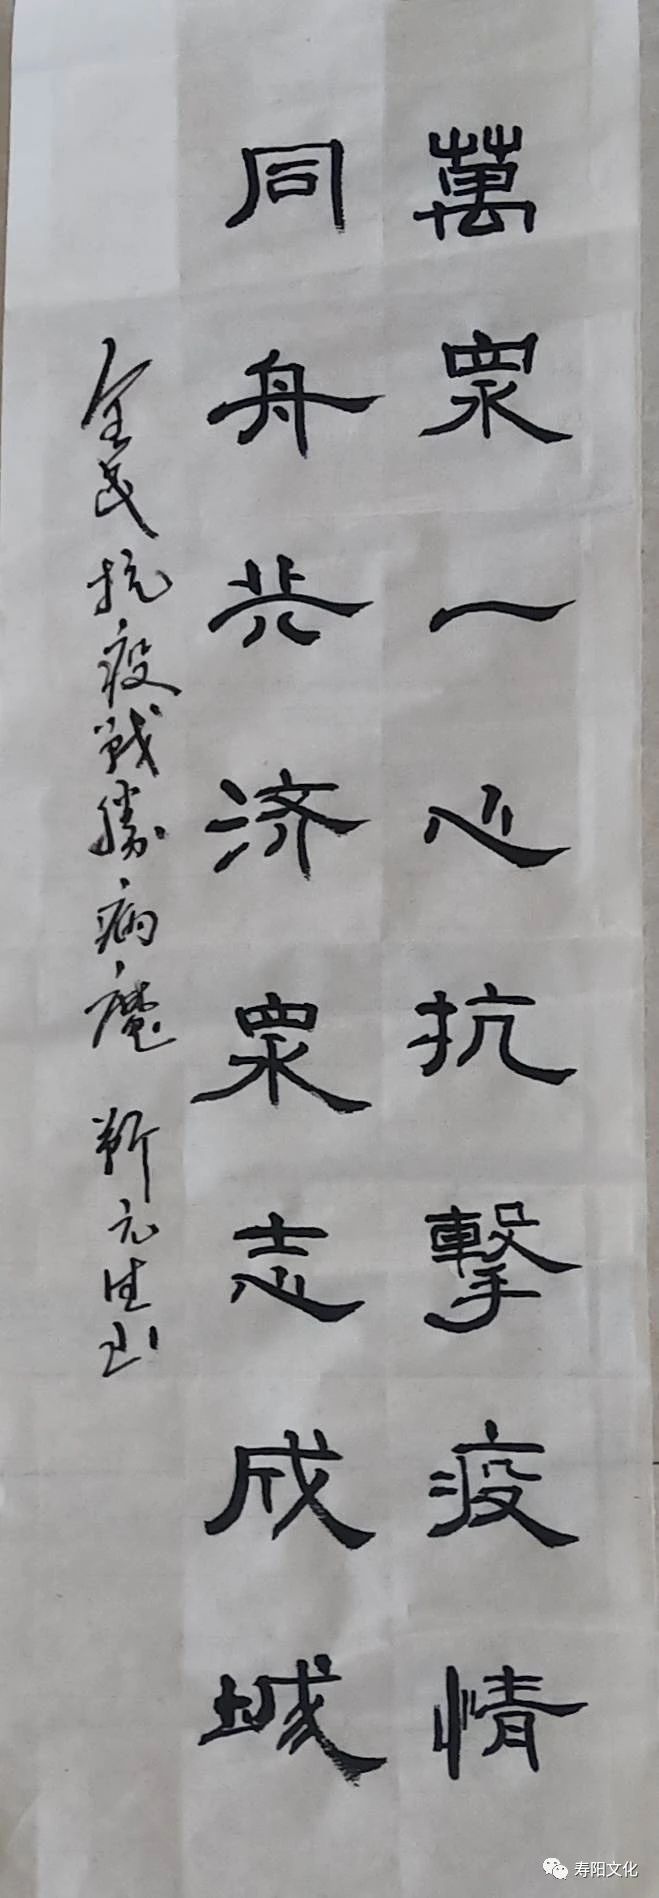 萬眾一心抗擊疫情
同舟共济眾志成城
全民抗疫戰勝病魔 靳元生书
寿阳文化